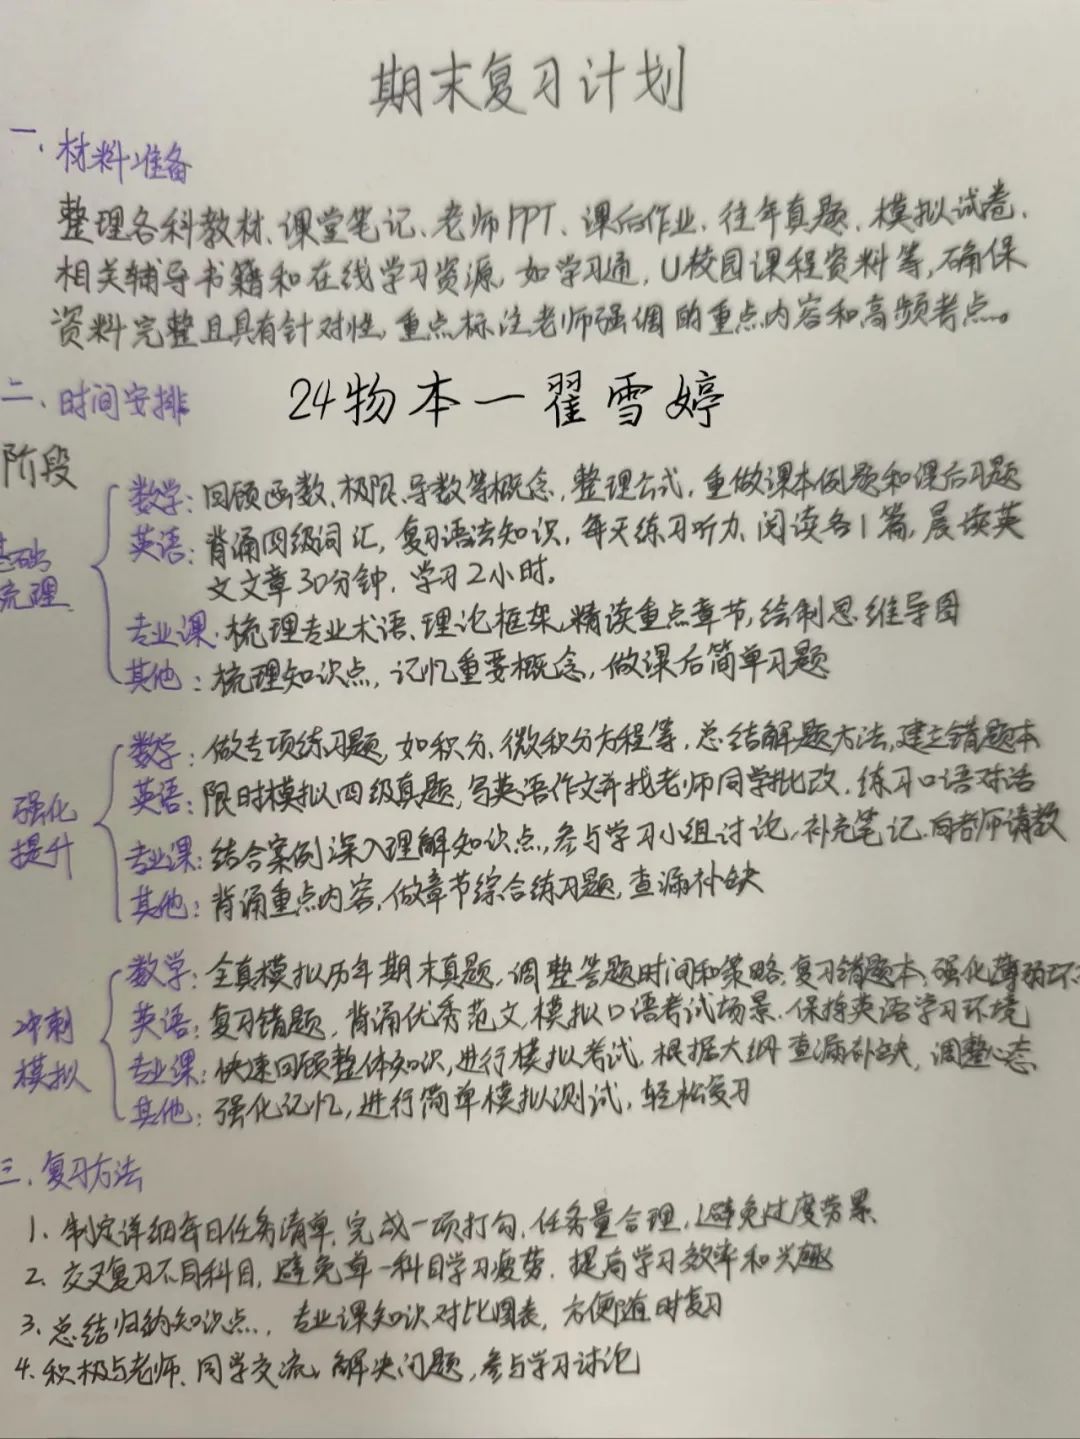 期末复习计划
一、材料准备
整理各科教材、课堂笔记、老师PPT、课后作业、往年真题、模拟试卷、
相关辅导书籍和在线学习资源,如学习通,U校园课程资料等,确保
资料完整且具有针对性,重点标注老师强调的重点内容和高频考点。
二、时间安排
24物本一翟雪婷
阶段
基础
梳理
数学:回顾函数、极限、导数等概念,整理公式,重做课本例题和课后习题
英语:背诵四级词汇,复习语法知识,每天练习听力、阅读各1篇,晨读英
文文章30分钟,学习2小时。
专业课:梳理专业术语、理论框架,精读重点章节,绘制思维导图
其他:梳理知识点,记忆重要概念,做课后简单习题
强化
提升
数学:做专项练习题,如积分、微积分方程等,总结解题方法,建立错题本
英语:限时模拟四级真题,写英语作文并找老师同学批改,练习口语对话
专业课:结合案例深入理解知识点,参与学习小组讨论,补充笔记,向老师请教
其他:背诵重点内容,做章节综合练习题,查漏补缺
冲刺
模拟
数学:全真模拟历年期末真题,调整答题时间和策略,复习错题本,强化薄弱环
英语:复习错题,背诵优秀范文,模拟口语考试场景,保持英语学习环境
专业课:快速回顾整体知识,进行模拟考试,根据大纲查漏补缺,调整心态
其他:强化记忆,进行简单模拟测试,轻松复习
三、复习方法
1、制定详细每日任务清单,完成一项打勾,任务量合理,避免过度劳累
2、交叉复习不同科目,避免单一科目学习疲劳,提高学习效率和兴趣
3、总结归纳知识点,专业课知识对比图表,方便随时复习
4、积极与老师、同学交流,解决问题,参与学习讨论